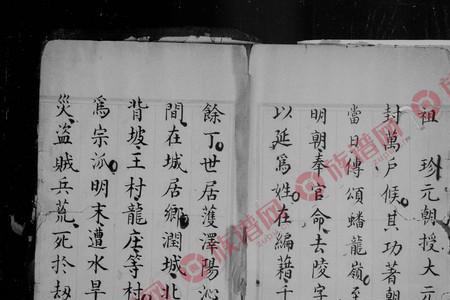 祖 珍元朝授大元
封萬戶候其功著朝
當日傳頌蟠龍嶺至
明朝奉官命去陵字
以延爲姓在編籍千
餘丁世居濩澤陽沁
間在城居鄉潤城北
背坡王村龍庄等村
爲宗派明末遭水旱
災盜賊兵荒死於刼
族谱网
族谱网
族谱网